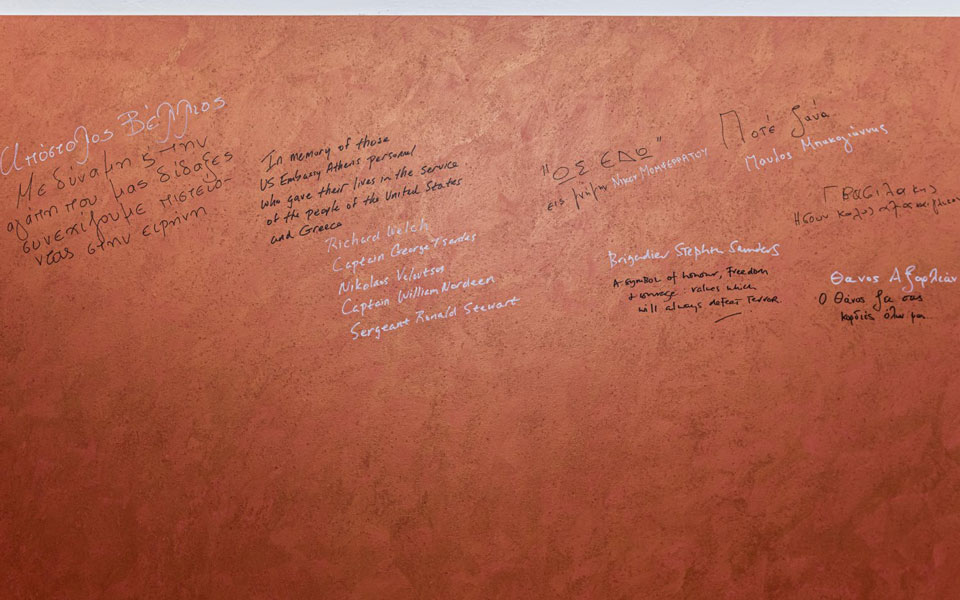 Απόστολος Βέλλιος
Με δύναμη & την
αγάπη που μας δίδαξες
συνεχίζουμε πιστεύο-
ντας στην ειρήνη
In memory of those
US Embassy Athens personal
who gave their lives in the service
of the people of the United States
and Greece
Richard Welch
Captain George Tsantes
Nikolaos Veloutsos
Captain William Nordeen
Sergeant Ronald Stewart
"ΩΣ ΕΔΩ"
εις μνήμην ΝΙΚΟΥ ΜΟΜΦΕΡΡΑΤΟΥ
Ποτέ ξανά
Παύλος Μπακογιάννης
Brigadier Stephen Saunders
A symbol of honour, freedom
+ courage: values which
will always defeat terror
Γ. Βασιλάκης
Ήσουν καλός
Θάνος Αξαρλιάν
Ο Θάνος ζει στις
καρδιές όλων μας